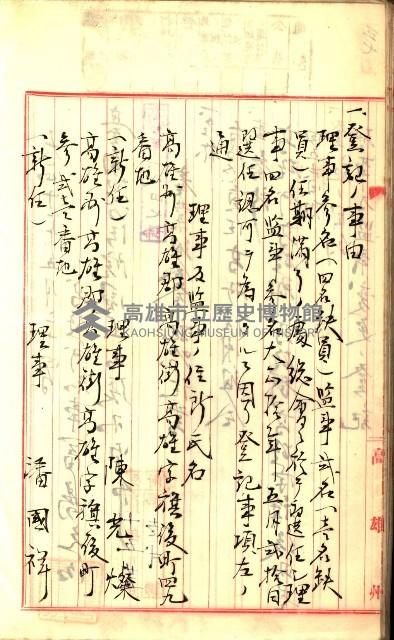 一、登記ノ事由
理事參名(四名缺員)監事貳名(壱名缺
員)任期満了ノ處総會ニ於テ選任シ理
事四名監事參名大正拾年五月貳拾日
選任認可ヲ為シタルニ因リ登記事項左ノ
通
理事及監事ノ住所氏名
高雄州高雄郡高雄街高雄字旗後町四九
番地
(新任) 理事 陳光燦
高雄州高雄郡高雄街高雄字旗後町
參貳壱番地
(新任) 理事 潘國祥
高雄州
高雄市立歷史博物館
KAOHSIUNG MUSEUM OF HISTORY